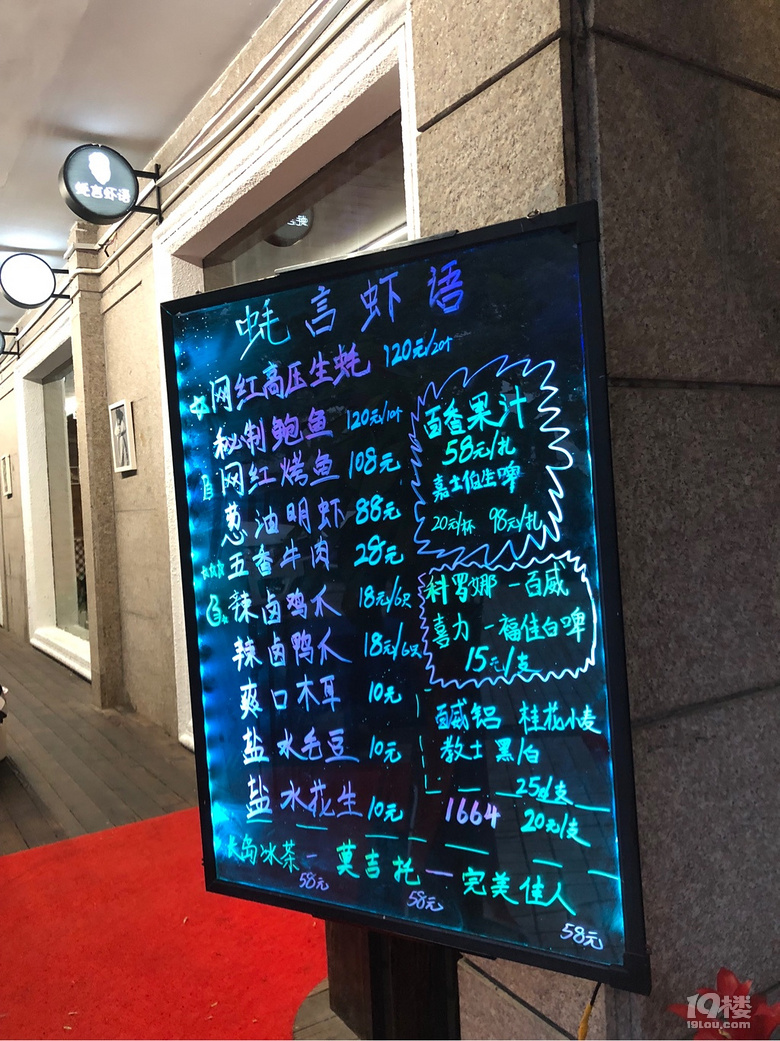 蚝言虾语
蚝言虾语
网红高压生蚝 120元/20个
秘制鲍鱼 120元/10个
网红烤鱼 108元
葱油明虾 88元
五香牛肉 28元
辣卤鸡爪 18元/6只
辣卤鸭爪 18元/6只
爽口木耳 10元
盐水毛豆 10元
盐水花生 10元
百香果汁
58元/扎
嘉士伯生啤
20元/杯 98元/扎
科罗娜 - 百威
喜力 - 福佳白啤
15元/支
百威铝 桂花小麦
教士黑/白
25元/支
1664 20元/支
长岛冰茶 - 莫吉托 - 完美佳人
58元 58元 58元
19楼
19lou.com